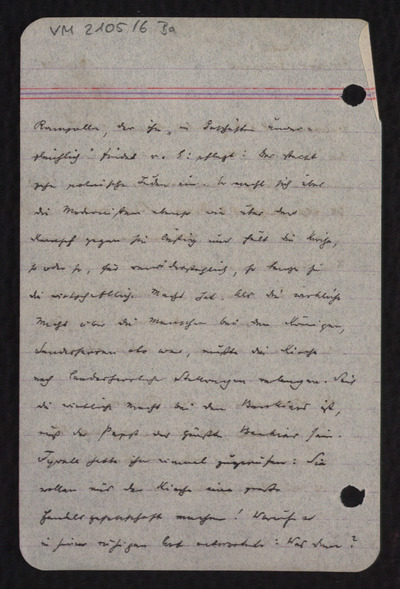 VM 2105/6 Ba
Rampolla, der ihn "in Geschäften
findet u. E: pflegt: Der steckt
polnische Juden ein. Er macht sich über
die Modernisten ebenso wie über den
Kampf gegen sie lustig und hält die Kirche,
so oder so, für, so lange sie
die wirtschaftliche Macht hat. Als die wirkliche
Macht über die Menschen bei den Königen,
Landesherren etc war, mußte die Kirche
nach landesherrlichen Stellungen verlangen. Seit
die wirkliche Macht bei den Bankiers ist,
muß der Papst der größte Bankier sein.
Tyrell hatte ihm einmal zugerufen: Sie
wollen aus der Kirche eine große
Handelsgesellschaft machen! Worauf er
in seiner ruhigen Art antwortete: Was denn?